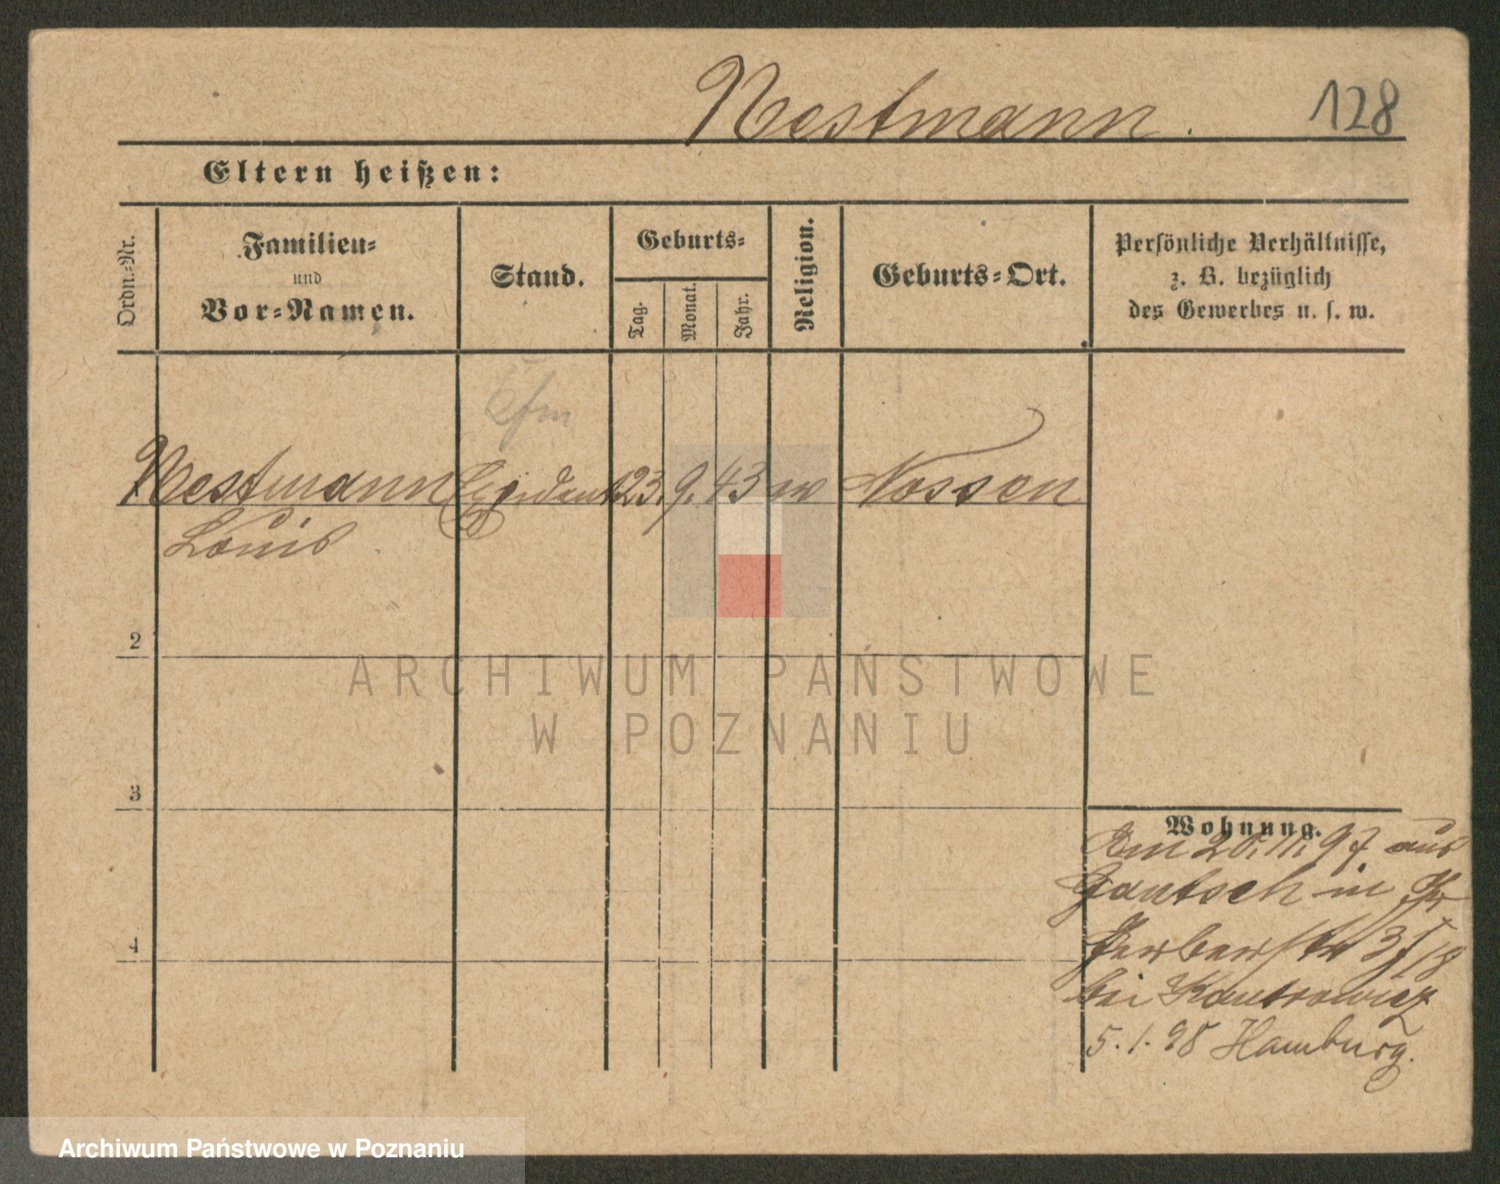 Nestmann.
128
Eltern heißen:
Ordn.-Nr.
Familien-
und
Vor-Namen.
Stand.
Geburts-
Tag.
Monat.
Jahr.
Religion.
Geburts-Ort.
Persönliche Verhältnisse,
z. B. bezüglich
des Gewerbes u. s. w.
Nestmann 23. 9. 43 Nossen
Louis
2
3
4
Wohnung.
Am 20.11.97 aus
Gautsch in
Gerberstr 3
bei Kantrowicz
5.1.98 Hamburg.
ARCHIWUM PAŃSTWOWE
W POZNANIU
Archiwum Państwowe w Poznaniu